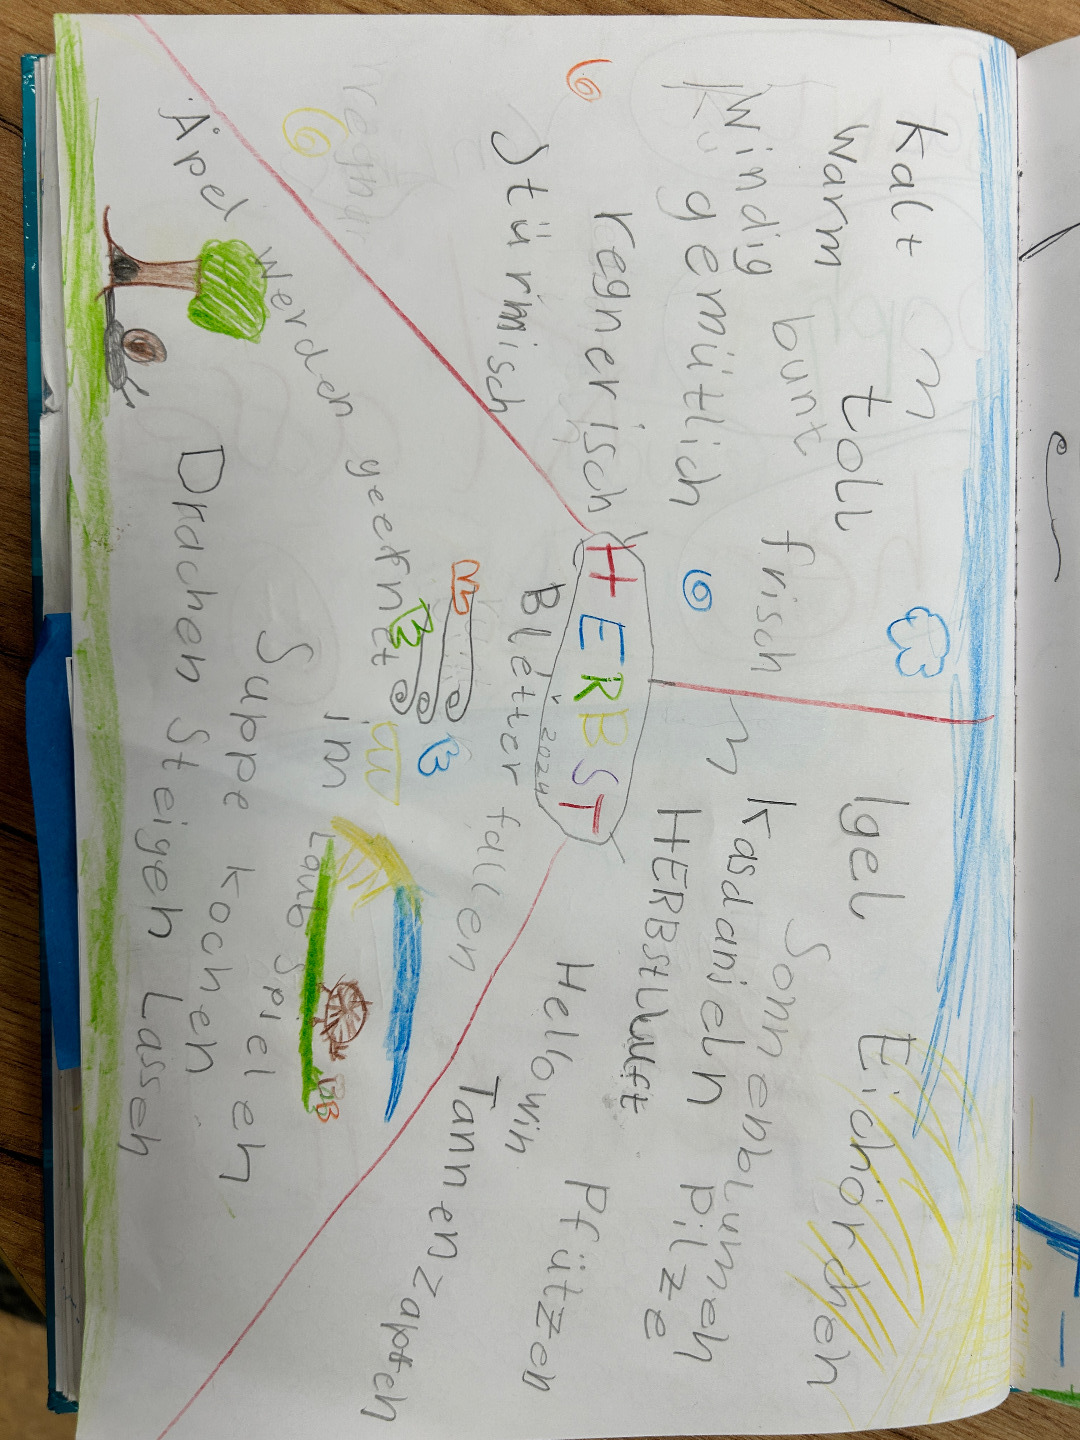 kalt
warm
toll
windig
bunt
gemütlich
frisch
regnerisch
Stürmisch
HERBST
2024
Igel
Eichörchen
Sonnenblumen
Kasdanien
pilze
HERBSTLuft
Hellowin
Pfützen
Tannenzapfen
Bletter fallen
Äpel werden geernet
im
Laub Spielen
Suppe kochen
Drachen Steigen Lassen